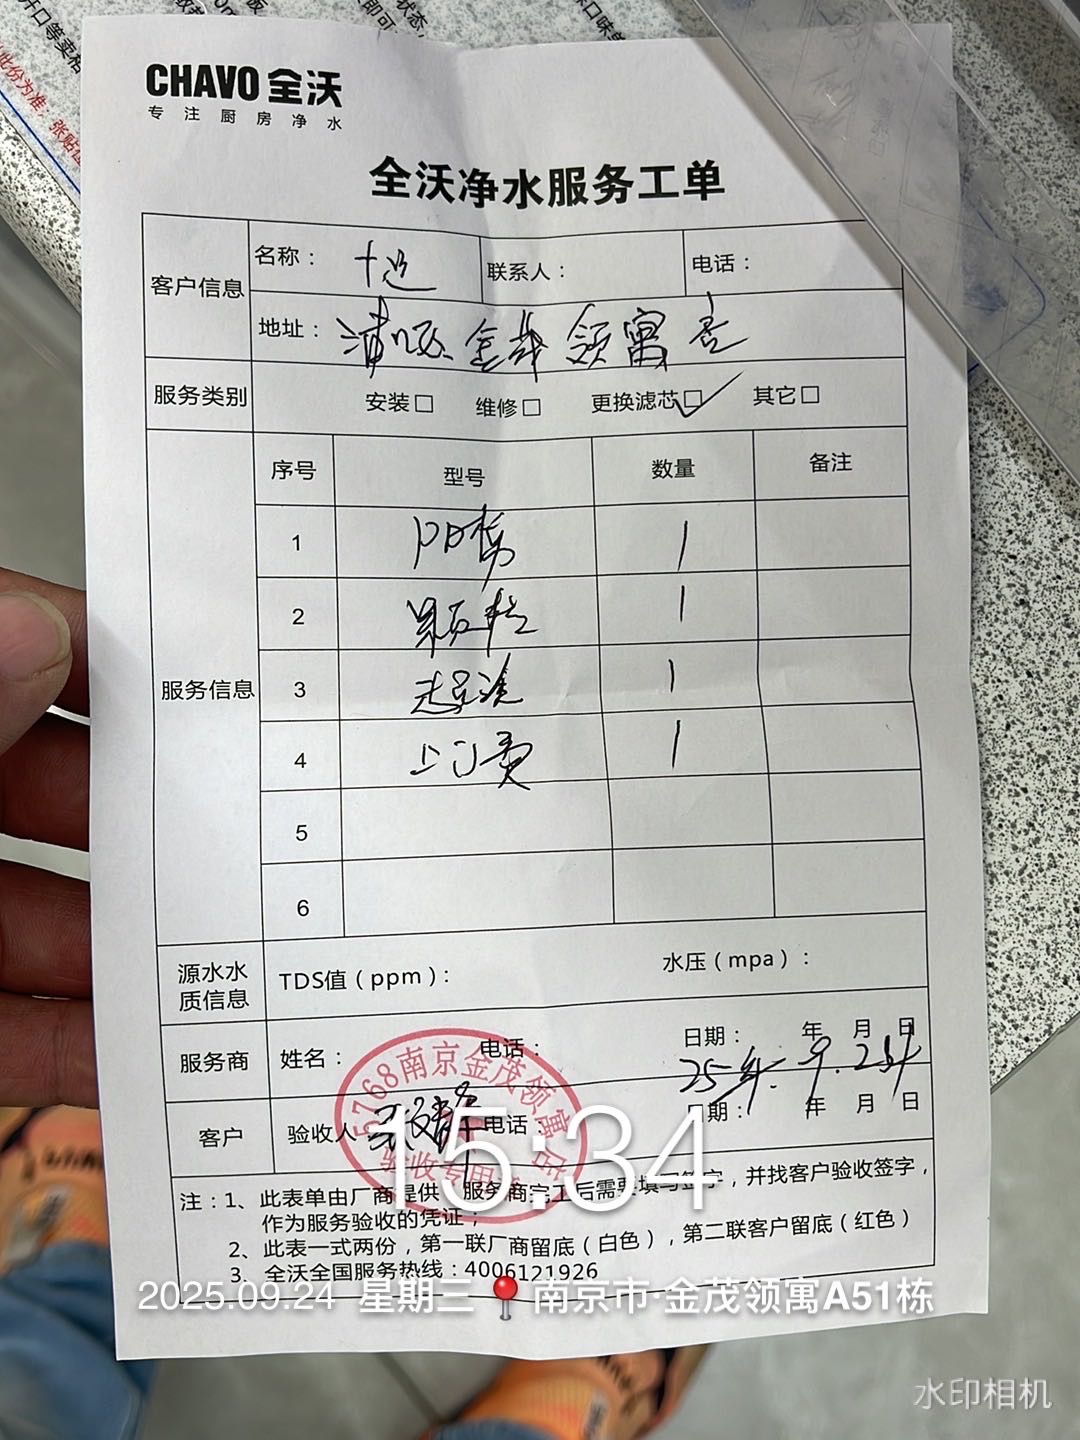 CHAVO 全沃
专注厨房净水
全沃净水服务工单
客户信息
名称：
联系人：
电话：
地址： 浦口 金茂领寓店
服务类别
安装□ 维修□ 更换滤芯□✓ 其它□
服务信息
序号 型号 数量 备注
1 PP棉 1
2 颗粒 1
3 超滤 1
4 上门费 1
5
6
源水水质信息
TDS值（ppm）：
水压（mpa）：
服务商
姓名：
电话：
日期： 年 月 日
25年.9.24
客户
验收人
电话：
日期： 年 月 日
5768南京金茂领寓店
验收专用
注：1、此表单由厂商提供，服务商完工后需要填写签字，并找客户验收签字，
作为服务验收的凭证；
2、此表一式两份，第一联厂商留底（白色），第二联客户留底（红色）
3、全沃全国服务热线：4006121926
15:34
2025.09.24 星期三 南京市·金茂领寓A51栋
水印相机